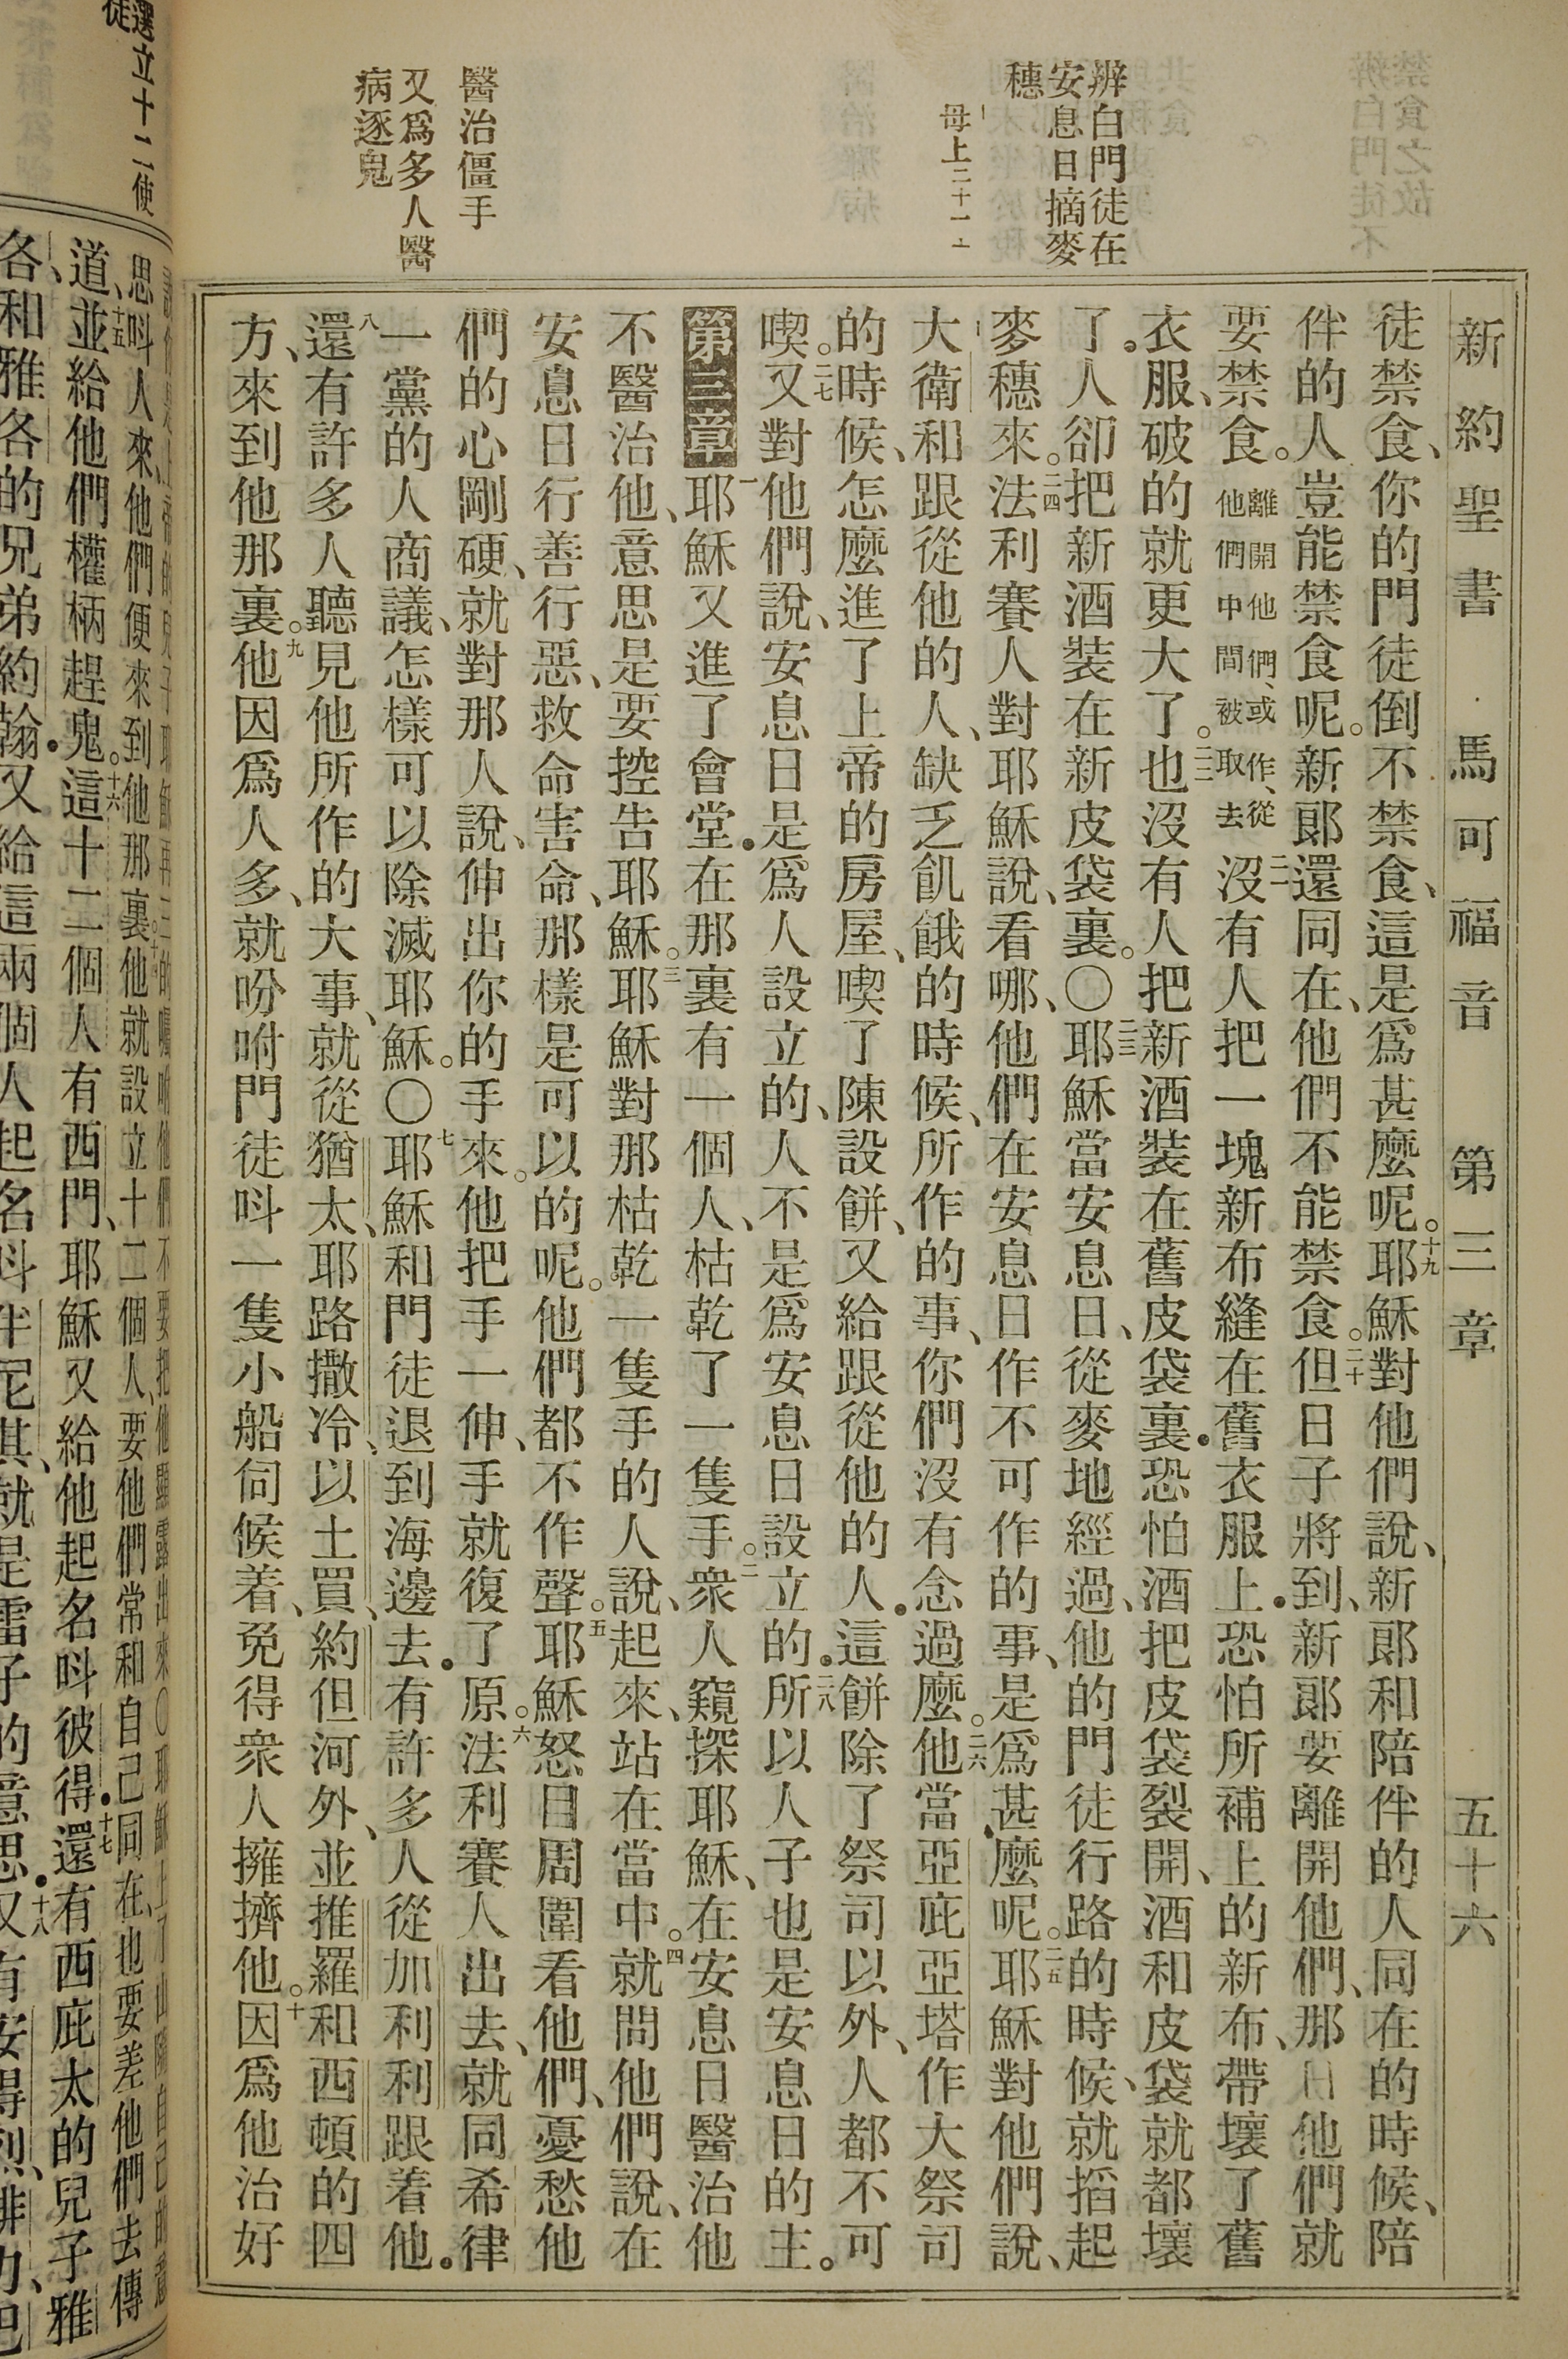 新約聖書 馬可福音 第三章 五十六
徒禁食、你的門徒倒不禁食、這是爲甚麽呢。十九耶穌對他們說、新郎和陪伴的人同在的時候、陪
伴的人豈能禁食呢。新郎還同在、他們不能禁食。二十但日子將到、新郎要離開他們、那日他們就
要禁食。離開他們、或作、從他們中間被取去二一沒有人把一塊新布縫在舊衣服上．恐怕所補上的新布、帶壞了舊
衣服、破的就更大了。二二也沒有人把新酒裝在舊皮袋裏．恐怕酒把皮袋裂開、酒和皮袋就都壞
了．人卻把新酒裝在新皮袋裏。〇二三耶穌當安息日、從麥地經過、他的門徒行路的時候、就搯起
麥穗來。二四法利賽人對耶穌說、看哪、他們在安息日作不可作的事、是爲甚麽呢。二五耶穌對他們說、
大衛和跟從他的人、缺乏飢餓的時候、所作的事、你們沒有念過麽。二六他當亞庇亞塔作大祭司
的時候、怎麽進了上帝的房屋、喫了陳設餅、又給跟從他的人．這餅除了祭司以外、人都不可
喫。二七又對他們說、安息日是爲人設立的、人不是爲安息日設立的．二八所以人子也是安息日的主。
第三章 一耶穌又進了會堂．在那裏有一個人、枯乾了一隻手。二衆人窺探耶穌、在安息日醫治他
不醫治他、意思是要控告耶穌。三耶穌對那枯乾一隻手的人說、起來、站在當中。四就問他們說、在
安息日行善行惡、救命害命、那樣是可以的呢。他們都不作聲。五耶穌怒目周圍看他們、憂愁他
們的心剛硬、就對那人說、伸出你的手來。他把手一伸、手就復了原。六法利賽人出去、就同希律
一黨的人商議、怎樣可以除滅耶穌。〇七耶穌和門徒退到海邊去．有許多人從加利利跟着他．
八還有許多人聽見他所作的大事、就從猶太、耶路撒冷、以土買、約但河外、並推羅和西頓的四
方、來到他那裏。九他因爲人多、就吩咐門徒呌一隻小船伺候着、免得衆人擁擠他。十因爲他治好
辨白門徒在
安息日摘麥
穗
母上二十一
醫治僵手
又爲多人醫
病逐鬼
選立十二使
徒
思呌人來、他們便來到他那裏他就設立十二個人、要他們常和自己同在、也要差他們去傳
道、十五並給他們權柄趕鬼。十六這十二個人有西門、耶穌又給他起名呌彼得．十七還有西庇太的兒子雅
各、和雅各的兄弟約翰．又給這兩個人起名呌半尼其、就是雷子的意思．十八又有安得烈、腓力、巴